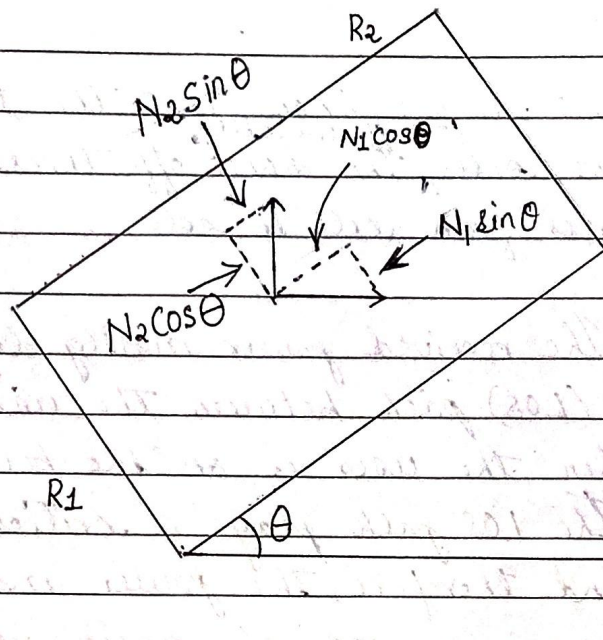 R2
N2 Sinθ
N1 cosθ
N1 sinθ
N2 Cosθ
R1
θ